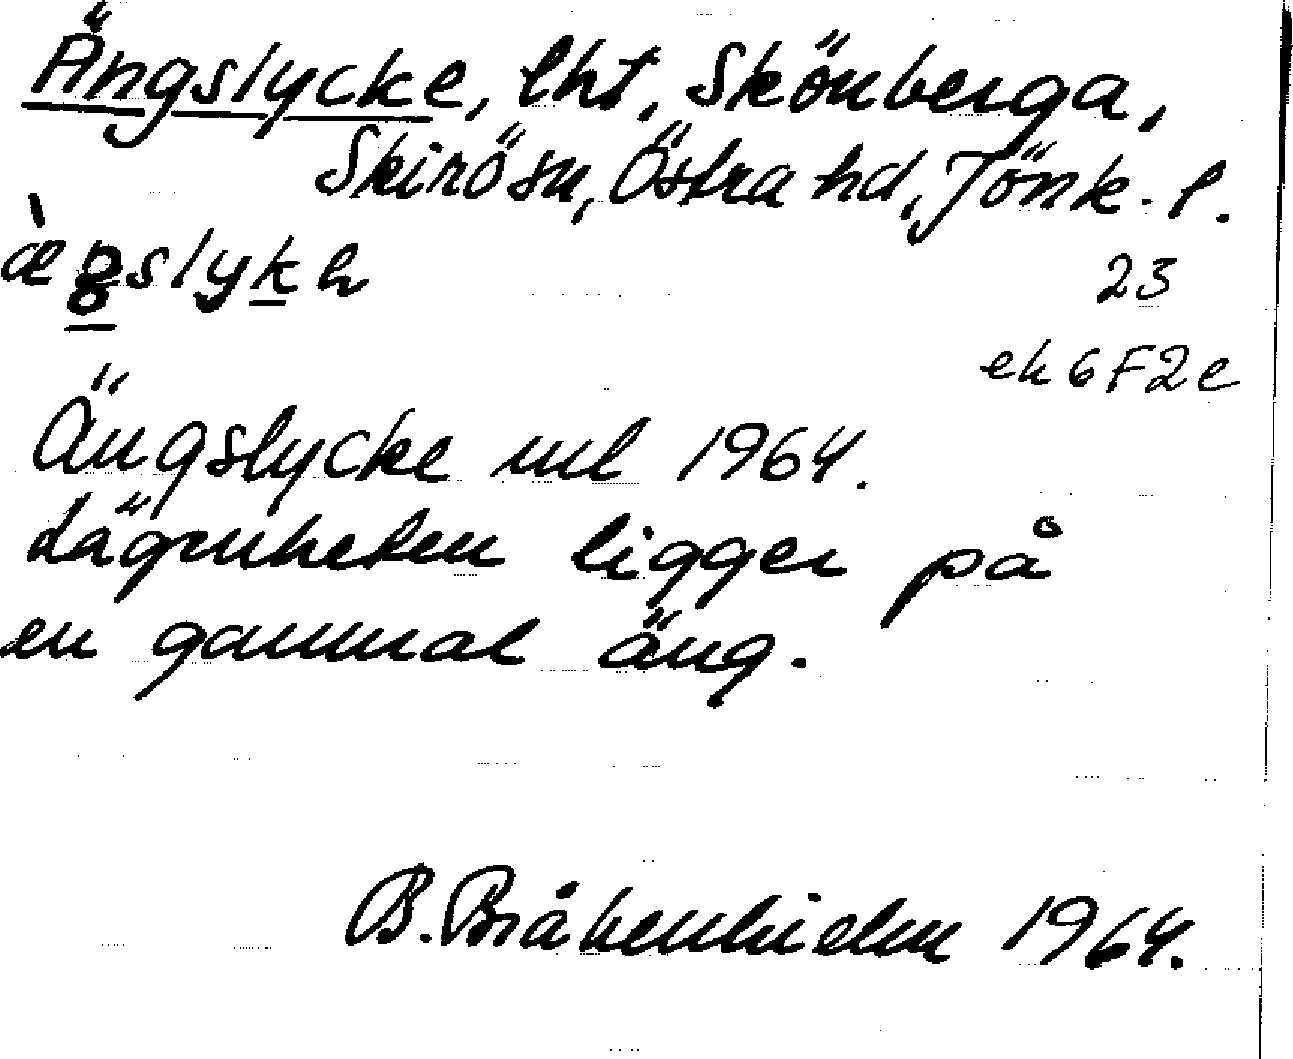 Ängslycke, lht, Skönberga,
Skirösn, Östra hd, Jönk. l.
23
ek 6F2e
Ängslycke ml 1964.
Lägenheten ligger på
en gammal äng.
B. Bråkenhielm 1964.